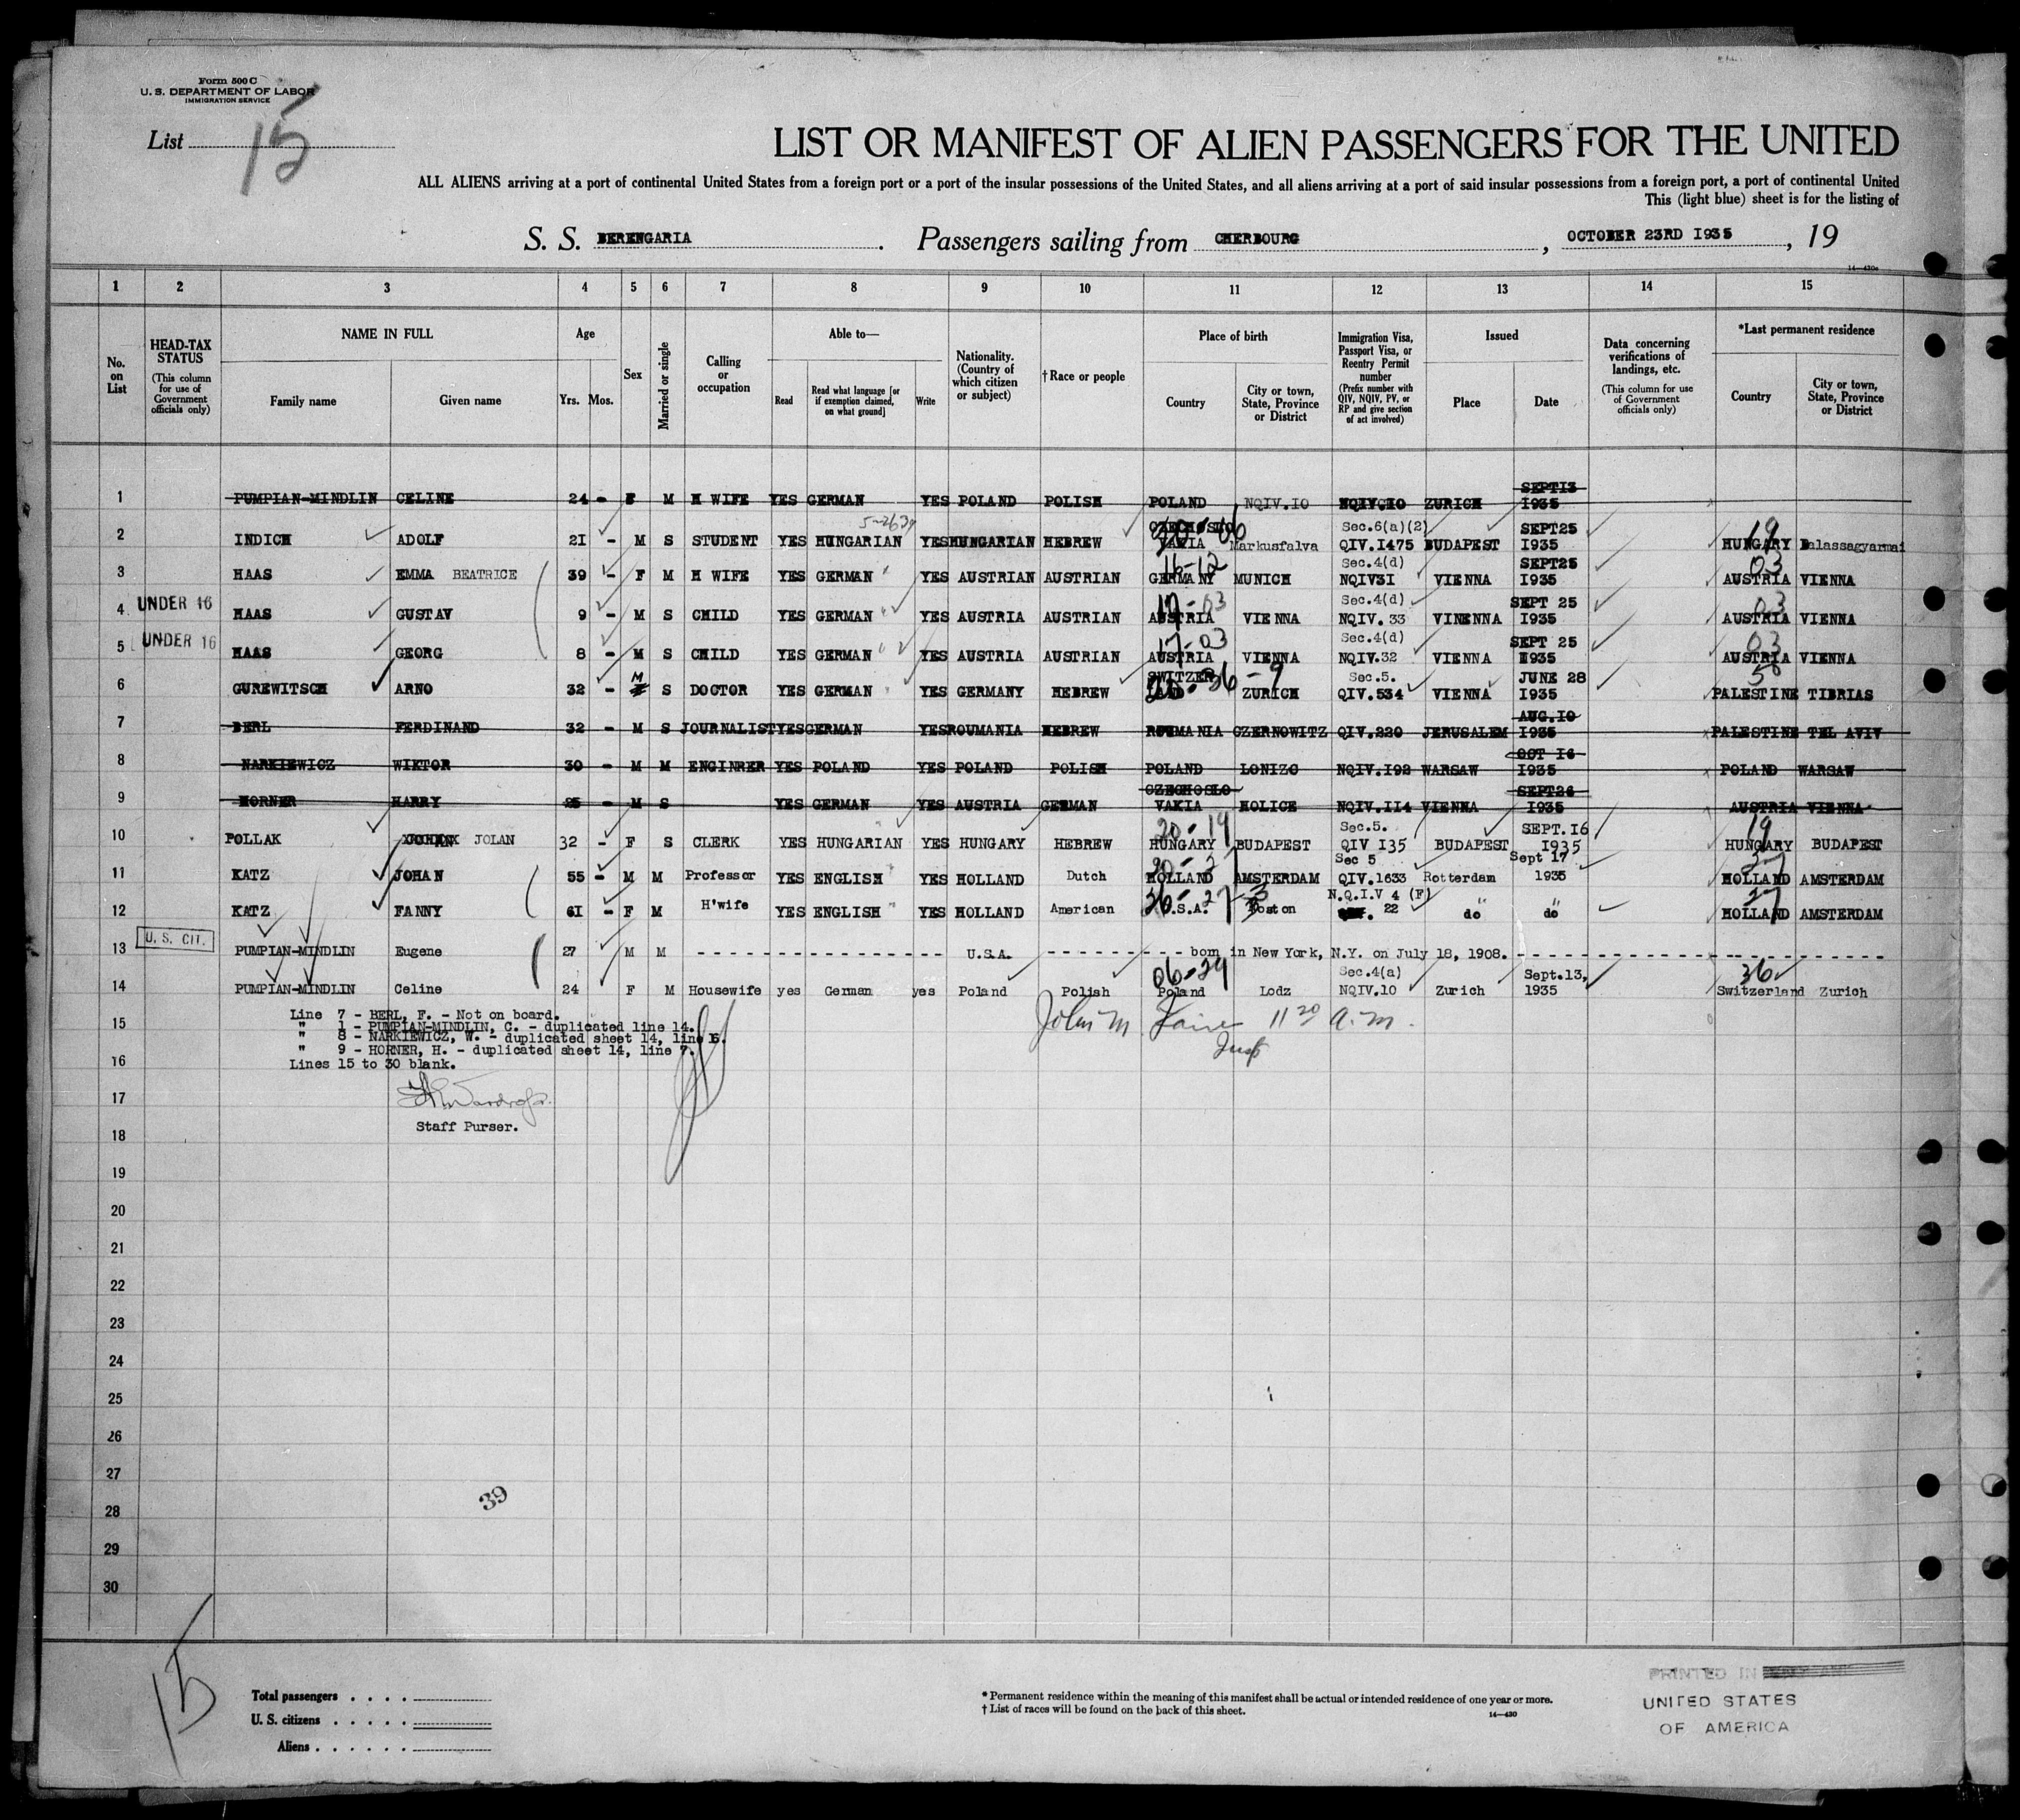 Form 500 C
U. S. DEPARTMENT OF LABOR
IMMIGRATION SERVICE
List 15
LIST OR MANIFEST OF ALIEN PASSENGERS FOR THE UNITED
ALL ALIENS arriving at a port of continental United States from a foreign port or a port of the insular possessions of the United States, and all aliens arriving at a port of said insular possessions from a foreign port, a port of continental United
This (light blue) sheet is for the listing of
S. S. BERENGARIA . Passengers sailing from CHERBOURG , OCTOBER 23RD I935 , 19
14—430c
1 2 3 4 5 6 7 8 9 10 11 12 13 14 15
No. on List
HEAD-TAX STATUS (This column for use of Government officials only)
NAME IN FULL Family name Given name
Age Yrs. Mos.
Sex
Married or single
Calling or occupation
Able to— Read Read what language [or if exemption claimed, on what ground] Write
Nationality. (Country of which citizen or subject)
†Race or people
Place of birth Country City or town, State, Province or District
Immigration Visa, Passport Visa, or Reentry Permit number (Prefix number with QIV, NQIV, PV, or RP and give section of act involved)
Issued Place Date
Data concerning verifications of landings, etc. (This column for use of Government officials only)
*Last permanent residence Country City or town, State, Province or District
1 PUMPIAN-MINDLIN CELINE 24 - F M H WIFE YES GERMAN YES POLAND POLISH POLAND NQIV.IO NQIV.IO ZURICH SEPT13 I935
5-2639
2 INDICH ADOLF 2I - M S STUDENT YES HUNGARIAN YES HUNGARIAN HEBREW CZECHOSLO VAKIA Markusfalva Sec.6(a)(2) QIV.I475 BUDAPEST SEPT25 I935 19 HUNGARY Balassagyarmat
3 HAAS EMMA BEATRICE 39 - F M H WIFE YES GERMAN YES AUSTRIAN AUSTRIAN 16-12 GERMANY MUNICH Sec.4(d) NQIV3I VIENNA SEPT25 I935 03 AUSTRIA VIENNA
4 UNDER 16 HAAS GUSTAV 9 - M S CHILD YES GERMAN YES AUSTRIA AUSTRIAN 17-03 AUSTRIA VIENNA Sec.4(d) NQIV. 33 VINENNA SEPT 25 I935 03 AUSTRIA VIENNA
5 UNDER 16 HAAS GEORG 8 - M S CHILD YES GERMAN YES AUSTRIA AUSTRIAN 17-03 AUSTRIA VIENNA Sec.4(d) NQIV.32 VIENNA SEPT 25 I935 03 AUSTRIA VIENNA
6 GUREWITSCH ARNO 32 - M S DOCTOR YES GERMAN YES GERMANY HEBREW SWITZER LAND 36-9 ZURICH Sec.5. QIV.534 VIENNA JUNE 28 I935 50 PALESTINE TIBRIAS
7 BERL FERDINAND 32 - M S JOURNALIST YES GERMAN YES ROUMANIA HEBREW ROUMANIA CZERNOWITZ QIV.220 JERUSALEM AUG.IO I935 PALESTINE TEL AVIV
8 NARKIEWICZ WIKTOR 30 - M M ENGINRER YES POLAND YES POLAND POLISH POLAND LONIZO NQIV.I92 WARSAW OCT I6 I935 POLAND WARSAW
9 HORNER HARRY 25 - M S YES GERMAN YES AUSTRIA GERMAN CZECHOSLO VAKIA HOLICE NQIV.II4 VIENNA SEPT26 I935 AUSTRIA VIENNA
10 POLLAK JOLAN 32 - F S CLERK YES HUNGARIAN YES HUNGARY HEBREW 20-19 HUNGARY BUDAPEST Sec.5. QIV I35 BUDAPEST SEPT.I6 I935 19 HUNGARY BUDAPEST
11 KATZ JOHAN 55 - M M Professor YES ENGLISH YES HOLLAND Dutch HOLLAND AMSTERDAM Sec 5 QIV.1633 Rotterdam Sept 17 1935 27 HOLLAND AMSTERDAM
12 KATZ FANNY 6I - F M H'wife YES ENGLISH YES HOLLAND American U.S.A. Boston N.Q.I.V 4 (F) 22 do do 27 HOLLAND AMSTERDAM
13 U. S. CIT. PUMPIAN-MINDLIN Eugene 27 M M - - - U.S.A. - - - born in New York, N.Y. on July 18, 1908. - - -
14 PUMPIAN-MINDLIN Celine 24 F M Housewife yes German yes Poland Polish 06-24 Poland Lodz Sec.4(a) NQIV.10 Zurich Sept.13, 1935 36 Switzerland Zurich
Line 7 - BERL, F. - Not on board.
15 " 1 - PUMPIAN-MINDLIN, C. - duplicated line 14.
" 8 - NARKIEWICZ, W. - duplicated sheet 14, line 6.
" 9 - HORNER, H. - duplicated sheet 14, line 7.
16 Lines 15 to 30 blank.
John M. 11 20 a.m.
Insp
17
Staff Purser.
18
19
20
21
22
23
24
25
26
27
28
39
29
30
15
Total passengers . . . .
U. S. citizens . . . . .
Aliens . . . . . .
* Permanent residence within the meaning of this manifest shall be actual or intended residence of one year or more.
† List of races will be found on the back of this sheet.
14—430
PRINTED IN
UNITED STATES
OF AMERICA